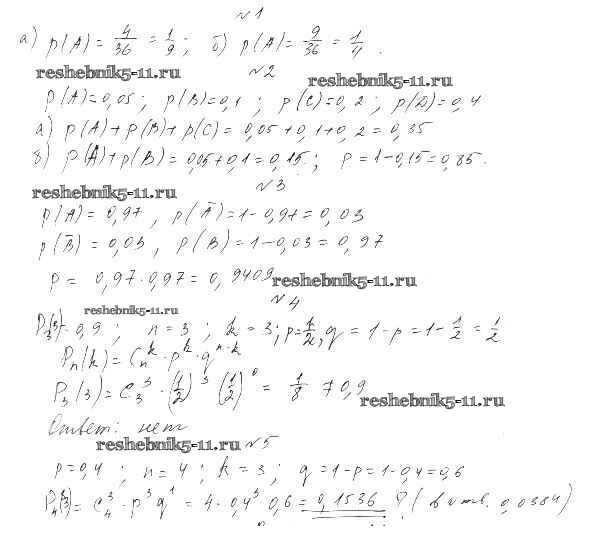 №1
а) p(A) = 4/36 = 1/9; б) p(A) = 9/36 = 1/4.
reshebnik5-11.ru №2 reshebnik5-11.ru
p(A)=0,05; p(B)=0,1; p(C)=0,2; p(D)=0,4
а) p(A)+p(B)+p(C)=0,05+0,1+0,2=0,35
б) p(A)+p(B)=0,05+0,1=0,15; p=1-0,15=0,85.
reshebnik5-11.ru №3
p(A)=0,97, p(Ā)=1-0,97=0,03
p(B̄)=0,03, p(B)=1-0,03=0,97
p= 0,97·0,97=0,9409 reshebnik5-11.ru
reshebnik5-11.ru №4
P₃(3)=0,9; n=3; k=3; p=1/2, q=1-p=1-1/2=1/2
Pₙ(k)=Cₙᵏ·pᵏ·qⁿ⁻ᵏ
P₃(3)=C₃³·(1/2)³(1/2)⁰=1/8 ≠0,9
reshebnik5-11.ru
Ответ: нет
reshebnik5-11.ru №5
p=0,4; n=4; k=3; q=1-p=1-0,4=0,6
P₄(3)=C₄³·p³q¹=4·0,4³·0,6=0,1536 ? (в отв. 0,0384)